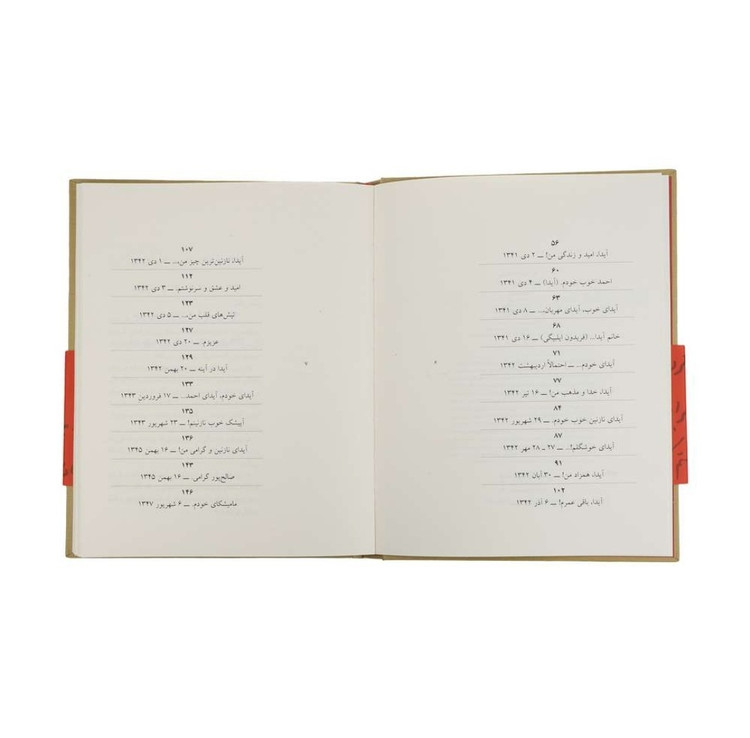 ۵۶
آیدا، امید و زندگی من! ــ ۲ دی ۱۳۴۱
۶۰
احمد خوب خودم. (آیدا) ــ ۴ دی ۱۳۴۱
۶۳
آیدای خوب، آیدای مهربان،... ــ ۸ دی ۱۳۴۱
۶۸
خانم آیدا... (فریدون ایل‌بیگی) ــ ۱۶ دی ۱۳۴۱
۷۱
آیدای خودم... ــ احتمالاً اردیبهشت ۱۳۴۲
۷۷
آیدا، خدا و مذهب من! ــ ۱۶ تیر ۱۳۴۲
۸۴
آیدای نازنین خوب خودم. ــ ۲۹ شهریور ۱۳۴۲
۸۷
آیدای خوشگلم!... ــ ۲۷ ـ ۲۸ مهر ۱۳۴۲
۹۱
آیدا، همزاد من! ــ ۳۰ آبان ۱۳۴۲
۱۰۴
آیدا، باقی عمرم! ــ ۶ آذر ۱۳۴۲
۱۰۷
آیدا، نازنین‌ترین چیز من،... ــ ۱ دی ۱۳۴۲
۱۱۲
امید و عشق و سرنوشتم. ــ ۳ دی ۱۳۴۲
۱۲۳
تپش‌های قلب من،... ــ ۵ دی ۱۳۴۲
۱۲۷
عزیزم. ــ ۲۰ دی ۱۳۴۲
۱۲۹
آیدا در آینه ــ ۲۰ بهمن ۱۳۴۲
۱۳۳
آیدای خودم، آیدای احمد... ــ ۱۷ فروردین ۱۳۴۳
۱۳۵
آیشک خوب نازنینم! ــ ۲۳ شهریور ۱۳۴۳
۱۳۶
آیدای نازنین و گرامی من! ــ ۱۶ بهمن ۱۳۴۵
۱۴۳
صالح‌پور گرامی. ــ ۱۶ بهمن ۱۳۴۵
۱۴۶
مامیشکای خودم. ــ ۶ شهریور ۱۳۴۷